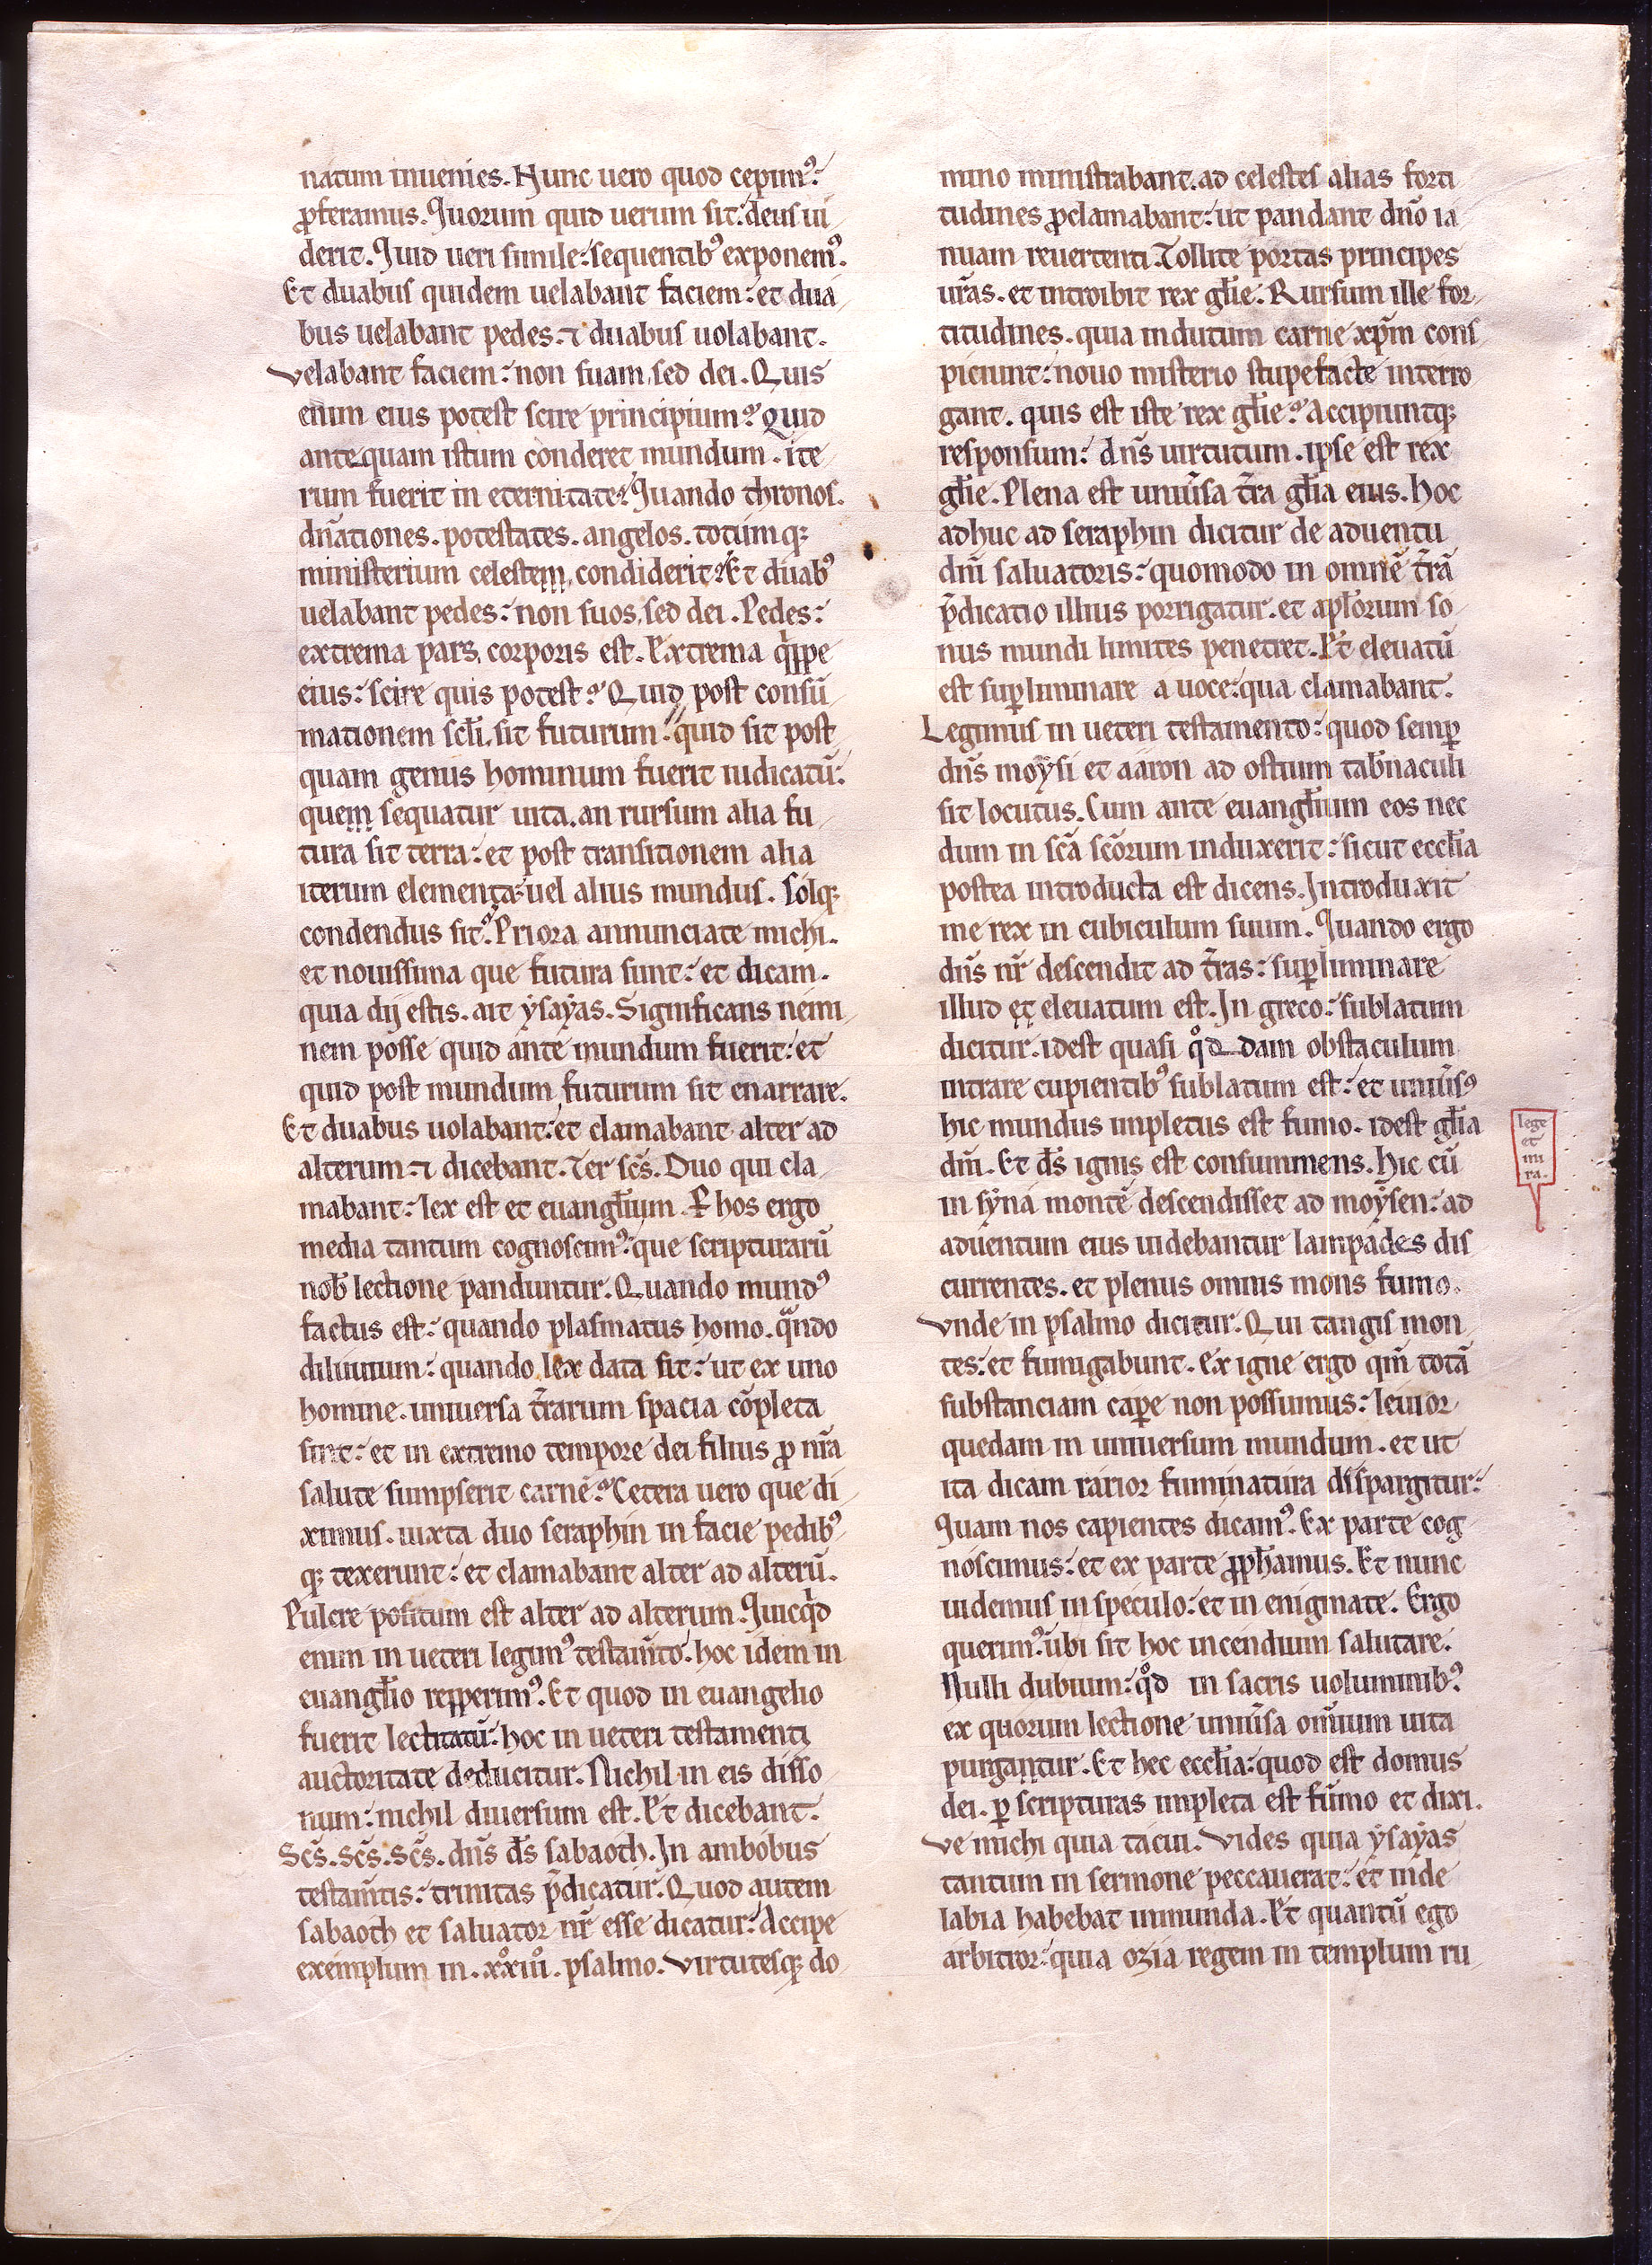 natum inuenies. Nunc uero quod cepimꝰ:
ꝓferamus. Quorum quid uerum sit: deus ui
derit. Quid ueri simile: sequentibꝰ exponemꝰ.
Et duabus quidem uelabant faciem: et dua
bus uelabant pedes. ⁊ duabus uolabant.
Velabant faciem: non suam, sed dei. Quis
enim eius potest scire principium? Quid
antequam istum conderet mundum. ite
rum fuerit in eternitate? Quando thronos.
dn̄ationes. potestates. angelos. totumqꝫ
ministerium celestem, condiderit? Et duabꝰ
uelabant pedes: non suos, sed dei. Pedes:
extrema pars, corporis est. Extrema qͥppe
eius: scire quis potest? Quid post consū
mationem scl̄i, sit futurum: quid sit post
quam genus hominum fuerit iudicatū:
quem sequatur uita. an rursum alia fu
tura sit terra: et post transitionem alia
iterum elementa: uel alius mundus. solqꝫ
condendus sit? Priora annunciate michi.
et nouissima que futura sunt: et dicam.
quia dij estis. ait ẏsaẏas. Significans nemi
nem posse quid ante mundum fuerit: et
quid post mundum futurum sit enarrare.
Et duabus uolabant: et clamabant alter ad
alterum ⁊ dicebant. Ter sc̄s. Duo qui cla
mabant: lex est et euangl̄ium. Per hos ergo
media tantum cognoscimꝰ: que scripturarū
nob̄ lectione panduntur. Quando mundꝰ
factus est: quando plasmatus homo. qͣndo
diluuium: quando lex data sit: ut ex uno
homine. uniuersa tr̄arum spacia cōpleta
sint: et in extremo tempore dei filius ꝓ nr̄a
salute sumpserit carnē? Cetera uero que di
ximus. iuxta duo seraphin in facie pedibꝰ
qꝫ texerunt: et clamabant alter ad alterū.
Pulcre positum est alter ad alterum. Quicqͥd
enim in ueteri legimꝰ testam̄to. hoc idem in
euangl̄io repperimꝰ. Et quod in euangelio
fuerit lectitatū: hoc in ueteri testamenti
auctoritate deducitur. Nichil in eis disso
num: nichil diuersum est. Et dicebant.
Sc̄s. sc̄s. sc̄s. dn̄s d̄s sabaoth. In ambobus
testam̄tis: trinitas p̄dicatur. Quod autem
sabaoth et saluator nr̄ esse dicatur: Accipe
exemplum in .xxͦiiiͦ. psalmo. Virtutesqꝫ do
mino ministrabant. ad celestes alias forti
tudines ꝓclamabant: ut pandant dn̄o ia
nuam reuertenti. Tollite portas principes
ur̄as. et introibit rex gl̄ie. Rursum ille for
titudines. quia indutum carne xp̄m cons
piciunt: nouo misterio stupefacte interro
gant. quis est iste rex gl̄ie? Accipiuntqꝫ
responsum: dn̄s uirtutum. ipse est rex
gl̄ie. Plena est uniūsa tr̄a gl̄ia eius. hoc
adhuc ad seraphin dicitur de aduentu
dn̄i saluatoris: quomodo in omnē tr̄ā
p̄dicatio illius porrigatur. et apl̄orum so
nus mundi limites penetret. Et eleuatū
est suꝑliminare a uoce: qua clamabant.
Legimus in ueteri testamento: quod semꝑ
dn̄s moẏsi et aaron ad ostium tab̄naculi
sit locutus. Cum ante euangl̄ium eos nec
dum in sc̄a sc̄orum induxerit: sicut eccl̄ia
postea introducta est dicens. Introduxit
me rex in cubiculum suum. Quando ergo
dn̄s nr̄ descendit ad tr̄as: suꝑliminare
illud et eleuatum est. In greco: sublatum
dicitur. idest quasi qͦddam obstaculum
intrare cupientibꝰ sublatum est: et uniūsꝰ
hic mundus impletus est fumo. idest gl̄ia
dn̄i. Et d̄s ignis est consummens. hic cū
in sẏna monte descendisset ad moẏsen: ad
aduentum eius uidebantur lampades dis
currentes. et plenus omnis mons fumo.
Vnde in psalmo dicitur. Qui tangis mon
tes: et fumigabunt. Ex igne ergo qm̄ totā
substanciam caꝑe non possumus: leuior
quedam in uniuersum mundum. et ut
ita dicam rarior fuminatura dispargitur:
Quam nos capientes dicamꝰ. Ex parte cog
noscimus: et ex parte ꝓph̄amus. Et nunc
uidemus in speculo: et in enigmate. Ergo
querimꝰ: ubi sit hoc incendium salutare.
Nulli dubium: qͦd in sacris uoluminibꝰ:
ex quorum lectione uniūsa om̄ium uita
purgantur. Et hec eccl̄ia: quod est domus
dei. ꝑ scripturas impleta est fumo et dixi.
Ve michi quia tacui. Vides quia ẏsaẏas
tantum in sermone peccauerat: et inde
labia habebat inmunda. Et quantū ego
arbitror: quia ozia regem in templum ru
lege
et
mi
ra.